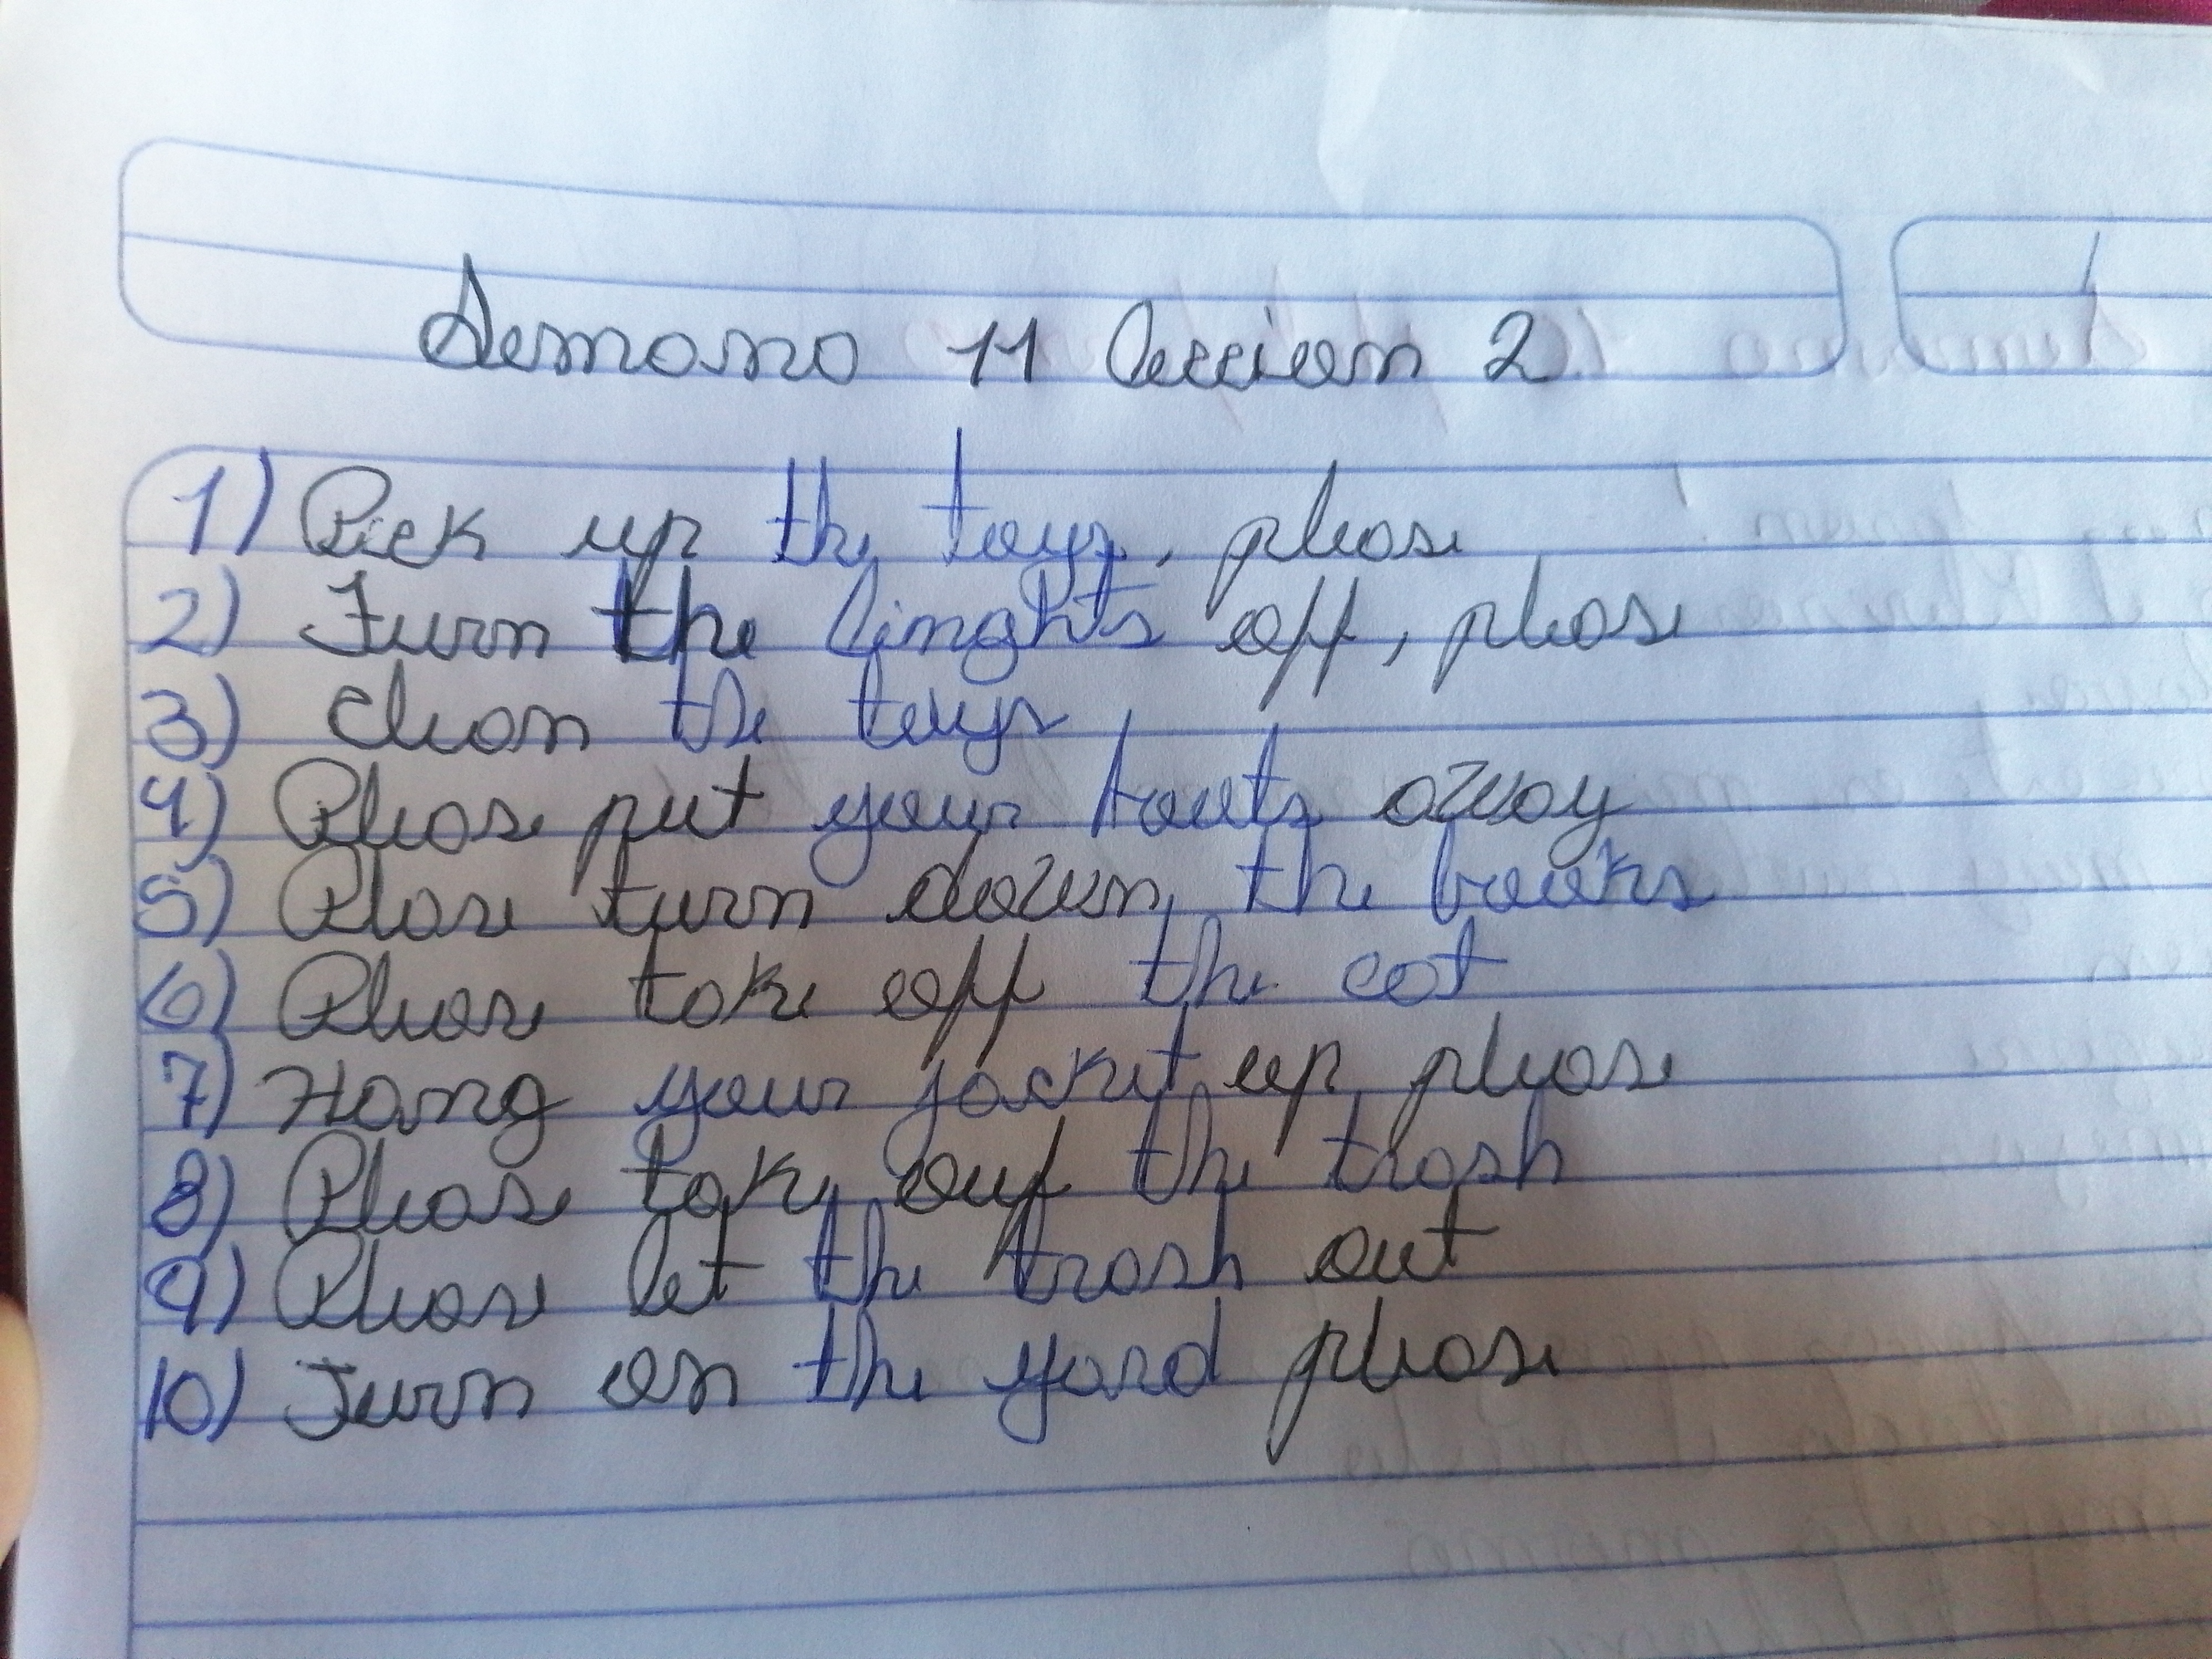 Semana 11 leccion 2
1) Pick up the toys, please
2) Turn the linghts off, please
3) clean the toys
4) Please put your boots away
5) Please turn down the books
6) Please take off the cat
7) Hang your jacket up, please
8) Please take out the trash
9) Please let the trash out
10) Turn on the yard please